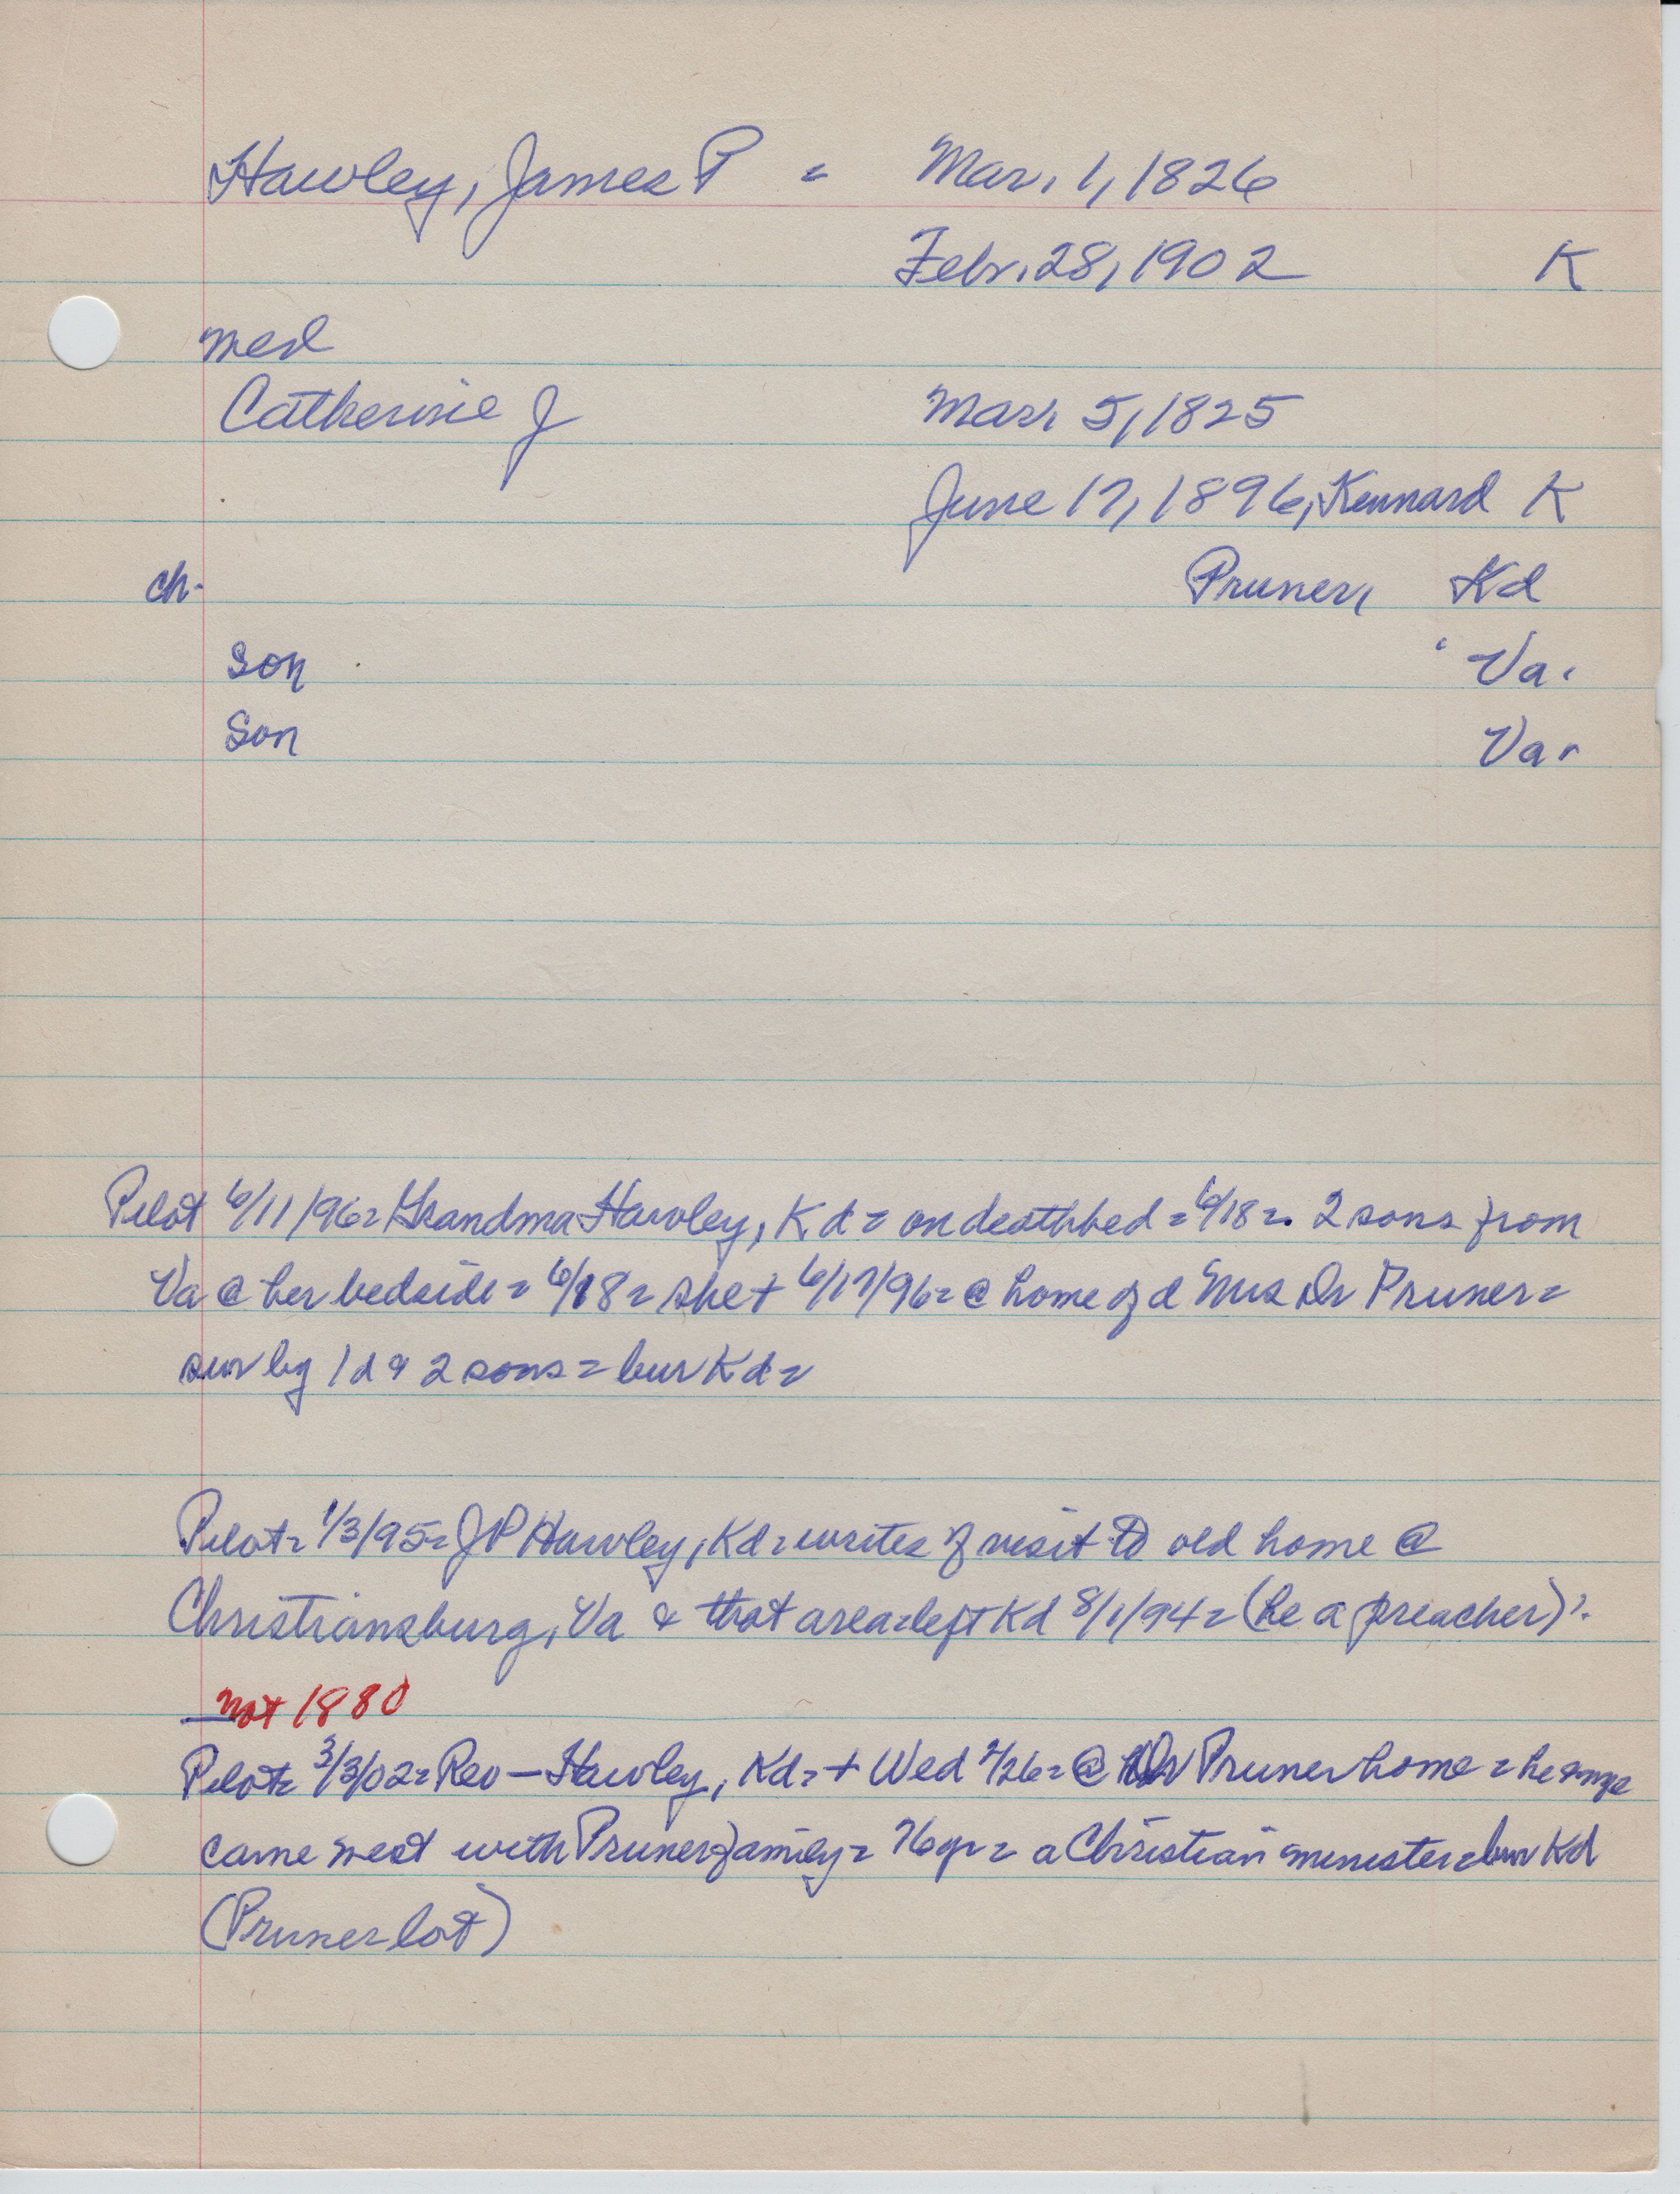 Hawley, James P = Mar. 1, 1826
Febr. 28, 1902 K
med
Catherine J Mar. 5, 1825
June 17, 1896, Kennard K
ch.
Pruner, Kd
son Va.
son Va.
Pilot 6/11/96= Grandma Hawley, Kd = on deathbed = 6/18 = 2 sons from
Va @ her bedside = 6/18 = she + 6/17/96 = @ home of d Mrs Dr Pruner =
sur by 1 d & 2 sons = bur Kd =
Pilot = 1/3/95 = J P Hawley, Kd = writes of visit to old home @
Christiansburg, Va & that area = left Kd 8/1/94 = (he a preacher)
not 1880
Pilot = 3/3/02 = Rev — Hawley, Kd = + Wed 2/26 = @ Dr Pruner home = he &
came west with Pruner family = 76 yr = a Christian minister = bur Kd
(Pruner lot)